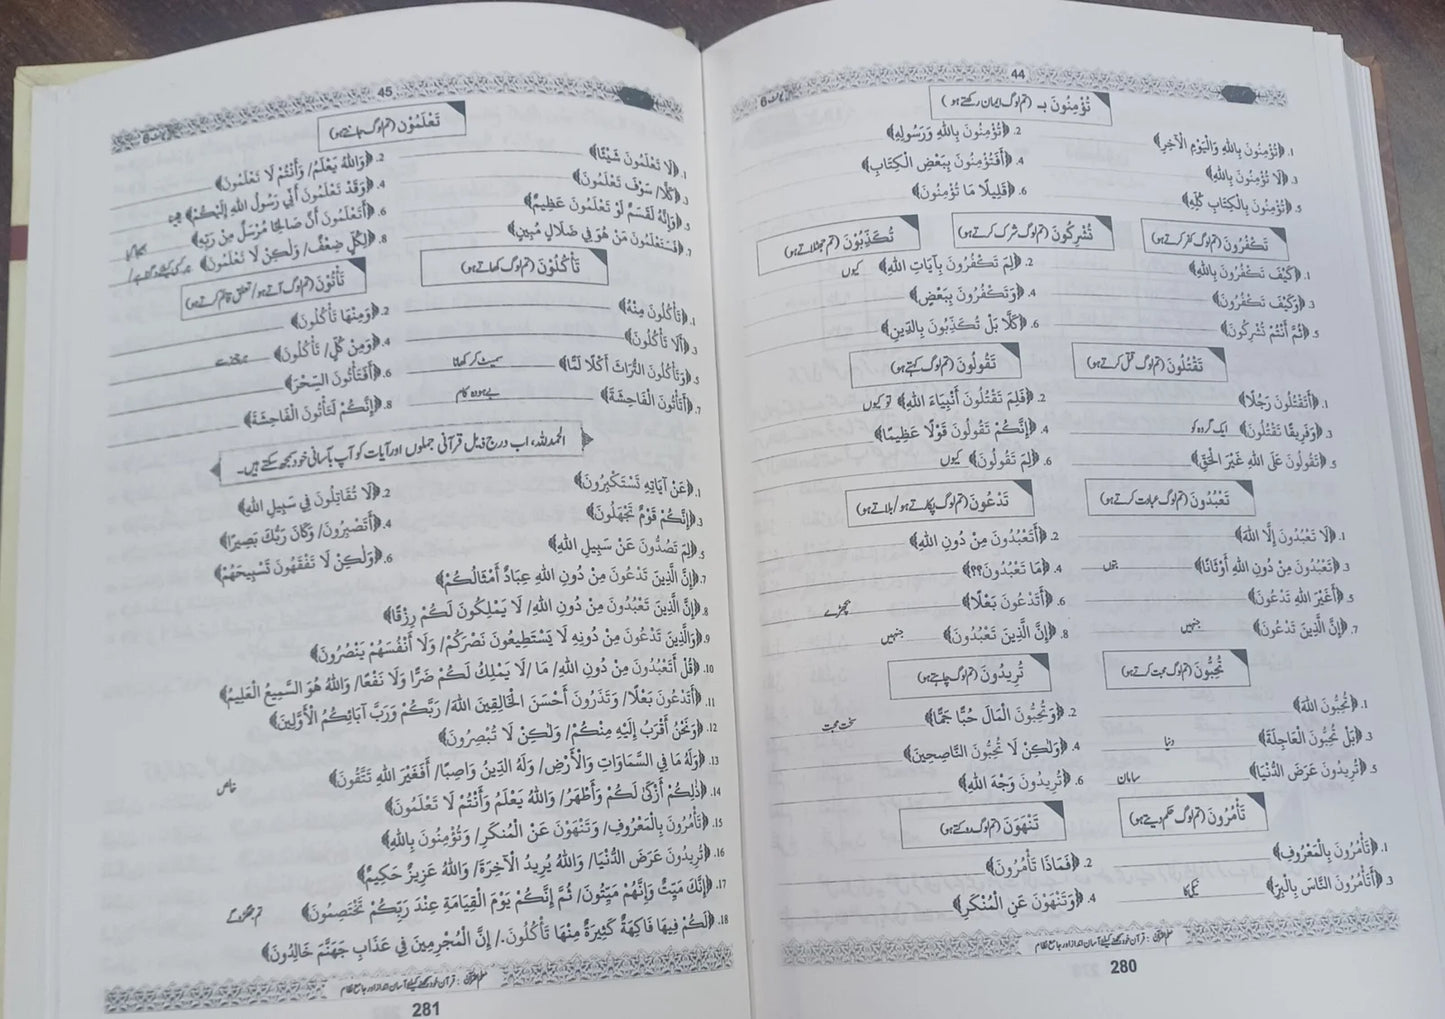 44
تُؤْمِنُونَ بِـ (تم لوگ ایمان رکھتے ہو)
1. ﴿تُؤْمِنُونَ بِاللّٰهِ وَالْيَوْمِ الْآخِرِ﴾ 2. ﴿تُؤْمِنُونَ بِاللّٰهِ وَرَسُولِهِ﴾
3. ﴿لَا تُؤْمِنُونَ بِاللّٰهِ﴾ 4. ﴿أَفَتُؤْمِنُونَ بِبَعْضِ الْكِتَابِ﴾
5. ﴿تُؤْمِنُونَ بِالْكِتَابِ كُلِّهِ﴾ 6. ﴿قَلِيلًا مَا تُؤْمِنُونَ﴾
تَكْفُرُونَ (تم لوگ کفر کرتے ہو) تُشْرِكُونَ (تم لوگ شرک کرتے ہو) تُكَذِّبُوْنَ (تم جھٹلاتے ہو)
1. ﴿كَيْفَ تَكْفُرُونَ بِاللّٰهِ﴾ 2. ﴿لِمَ تَكْفُرُونَ بِآيَاتِ اللّٰهِ﴾ کیوں
3. ﴿وَكَيْفَ تَكْفُرُونَ﴾ 4. ﴿وَتَكْفُرُونَ بِبَعْضٍ﴾
5. ﴿ثُمَّ أَنْتُمْ تُشْرِكُونَ﴾ 6. ﴿كَلَّا بَلْ تُكَذِّبُونَ بِالدِّينِ﴾
تَقْتُلُونَ (تم لوگ قتل کرتے ہو) تَقُولُونَ (تم لوگ کہتے ہو)
1. ﴿أَتَقْتُلُونَ رَجُلًا﴾ 2. ﴿فَلِمَ تَقْتُلُونَ أَنْبِيَاءَ اللّٰهِ﴾ تو کیوں
3. ﴿وَفَرِيقًا تَقْتُلُونَ﴾ ایک گروہ کو 4. ﴿إِنَّكُمْ تَقُولُونَ قَوْلًا عَظِيمًا﴾
5. ﴿تَقُولُونَ عَلَى اللّٰهِ غَيْرَ الْحَقِّ﴾ 6. ﴿لِمَ تَقُولُونَ﴾ کیوں
تَعْبُدُونَ (تم لوگ عبادت کرتے ہو) تَدْعُونَ (تم لوگ پکارتے ہو/بلاتے ہو)
1. ﴿لَا تَعْبُدُونَ إِلَّا اللّٰهَ﴾ 2. ﴿أَتَعْبُدُونَ مِنْ دُونِ اللّٰهِ﴾
3. ﴿تَعْبُدُونَ مِنْ دُونِ اللّٰهِ أَوْثَانًا﴾ بتوں 4. ﴿مَا تَعْبُدُونَ؟؟﴾
5. ﴿أَغَيْرَ اللّٰهِ تَدْعُونَ﴾ 6. ﴿أَتَدْعُونَ بَعْلًا﴾
7. ﴿إِنَّ الَّذِينَ تَدْعُونَ﴾ جنہیں 8. ﴿إِنَّ الَّذِينَ تَعْبُدُونَ﴾ جنہیں
تُحِبُّونَ (تم لوگ محبت کرتے ہو) تُرِيدُونَ (تم لوگ چاہتے ہو)
1. ﴿تُحِبُّونَ اللّٰهَ﴾ 2. ﴿وَتُحِبُّونَ الْمَالَ حُبًّا جَمًّا﴾ سخت محبت
3. ﴿بَلْ تُحِبُّونَ الْعَاجِلَةَ﴾ دنیا 4. ﴿وَلٰكِنْ لَا تُحِبُّونَ النَّاصِحِينَ﴾
5. ﴿تُرِيدُونَ عَرَضَ الدُّنْيَا﴾ سامان 6. ﴿تُرِيدُونَ وَجْهَ اللّٰهِ﴾
تَأْمُرُونَ (تم لوگ حکم دیتے ہو) تَنْهَوْنَ (تم لوگ روکتے ہو)
1. ﴿تَأْمُرُونَ بِالْمَعْرُوفِ﴾ 2. ﴿فَمَاذَا تَأْمُرُونَ﴾
3. ﴿أَتَأْمُرُونَ النَّاسَ بِالْبِرِّ﴾ نیکی کا 4. ﴿وَتَنْهَوْنَ عَنِ الْمُنْكَرِ﴾
معلم القرآن : قرآن خود سمجھنے کیلئے آسان انداز اور جامع نظام
280
45
تَعْلَمُوْن (تم لوگ جانتے ہو)
1. ﴿لَا تَعْلَمُونَ شَيْئًا﴾ 2. ﴿وَاللّٰهُ يَعْلَمُ/ وَأَنْتُمْ لَا تَعْلَمُونَ﴾
3. ﴿كَلَّا/ سَوْفَ تَعْلَمُونَ﴾ 4. ﴿وَقَدْ تَعْلَمُونَ أَنِّي رَسُولُ اللّٰهِ إِلَيْكُمْ﴾
5. ﴿وَإِنَّهُ لَقَسَمٌ لَوْ تَعْلَمُونَ عَظِيمٌ﴾ 6. ﴿أَتَعْلَمُونَ أَنَّ صَالِحًا مُرْسَلٌ مِنْ رَبِّهِ﴾
7. ﴿فَسَتَعْلَمُونَ مَنْ هُوَ فِي ضَلَالٍ مُبِينٍ﴾ 8. ﴿لِكُلٍّ ضِعْفٌ/ وَلٰكِنْ لَا تَعْلَمُونَ﴾
تَأْكُلُوْنَ (تم لوگ کھاتے ہو) تَأْتُوْنَ (تم لوگ آتے ہو/تعلق قائم کرتے ہو)
1. ﴿تَأْكُلُونَ مِنْهُ﴾ 2. ﴿وَمِنْهَا تَأْكُلُونَ﴾
3. ﴿أَلَا تَأْكُلُونَ﴾ 4. ﴿وَمِنْ كُلٍّ/ تَأْكُلُونَ﴾
5. ﴿وَتَأْكُلُونَ التُّرَاثَ أَكْلًا لَمًّا﴾ سمیٹ کر کھانا 6. ﴿أَفَتَأْتُونَ السِّحْرَ﴾
7. ﴿أَتَأْتُونَ الْفَاحِشَةَ﴾ بے ہودہ کام 8. ﴿إِنَّكُمْ لَتَأْتُونَ الْفَاحِشَةَ﴾
الحمد للہ، اب درج ذیل قرآنی جملوں اور آیات کو آپ بآسانی خود سمجھ سکتے ہیں۔
1. ﴿عَنْ آيَاتِهِ تَسْتَكْبِرُونَ﴾ 2. ﴿لَا تُقَاتِلُونَ فِي سَبِيلِ اللّٰهِ﴾
3. ﴿إِنَّكُمْ قَوْمٌ تَجْهَلُونَ﴾ 4. ﴿أَتَصْبِرُونَ/ وَكَانَ رَبُّكَ بَصِيرًا﴾
5. ﴿لِمَ تَصُدُّونَ عَنْ سَبِيلِ اللّٰهِ﴾ 6. ﴿وَلٰكِنْ لَا تَفْقَهُونَ تَسْبِيحَهُمْ﴾
7. ﴿إِنَّ الَّذِينَ تَدْعُونَ مِنْ دُونِ اللّٰهِ عِبَادٌ أَمْثَالُكُمْ﴾
8. ﴿إِنَّ الَّذِينَ تَعْبُدُونَ مِنْ دُونِ اللّٰهِ/ لَا يَمْلِكُونَ لَكُمْ رِزْقًا﴾
9. ﴿وَالَّذِينَ تَدْعُونَ مِنْ دُونِهِ لَا يَسْتَطِيعُونَ نَصْرَكُمْ/ وَلَا أَنْفُسَهُمْ يَنْصُرُونَ﴾
10. ﴿قُلْ أَتَعْبُدُونَ مِنْ دُونِ اللّٰهِ/ مَا/ لَا يَمْلِكُ لَكُمْ ضَرًّا وَلَا نَفْعًا/ وَاللّٰهُ هُوَ السَّمِيعُ الْعَلِيمُ﴾
11. ﴿أَتَدْعُونَ بَعْلًا/ وَتَذَرُونَ أَحْسَنَ الْخَالِقِينَ اللّٰهَ/ رَبَّكُمْ وَرَبَّ آبَائِكُمُ الْأَوَّلِينَ﴾
12. ﴿وَنَحْنُ أَقْرَبُ إِلَيْهِ مِنْكُمْ/ وَلٰكِنْ لَا تُبْصِرُونَ﴾
13. ﴿وَلَهُ مَا فِي السَّمَاوَاتِ وَالْأَرْضِ/ وَلَهُ الدِّينُ وَاصِبًا/ أَفَغَيْرَ اللّٰهِ تَتَّقُونَ﴾ خالص
14. ﴿ذٰلِكُمْ أَزْكَىٰ لَكُمْ وَأَطْهَرُ/ وَاللّٰهُ يَعْلَمُ وَأَنْتُمْ لَا تَعْلَمُونَ﴾
15. ﴿تَأْمُرُونَ بِالْمَعْرُوفِ/ وَتَنْهَوْنَ عَنْ الْمُنكَرِ/ وَتُؤْمِنُونَ بِاللّٰهِ﴾
16. ﴿تُرِيدُونَ عَرَضَ الدُّنْيَا/ وَاللّٰهُ يُرِيدُ الْآخِرَةَ/ وَاللّٰهُ عَزِيزٌ حَكِيمٌ﴾
17. ﴿إِنَّكَ مَيِّتٌ وَإِنَّهُمْ مَيِّتُونَ/ ثُمَّ إِنَّكُمْ يَوْمَ الْقِيَامَةِ عِنْدَ رَبِّكُمْ تَخْتَصِمُونَ﴾ تم جھگڑو گے
18. ﴿لَكُمْ فِيهَا فَاكِهَةٌ كَثِيرَةٌ مِنْهَا تَأْكُلُونَ./ إِنَّ الْمُجْرِمِينَ فِي عَذَابِ جَهَنَّمَ خَالِدُونَ﴾
معلم القرآن : قرآن خود سمجھنے کیلئے آسان انداز اور جامع نظام
281